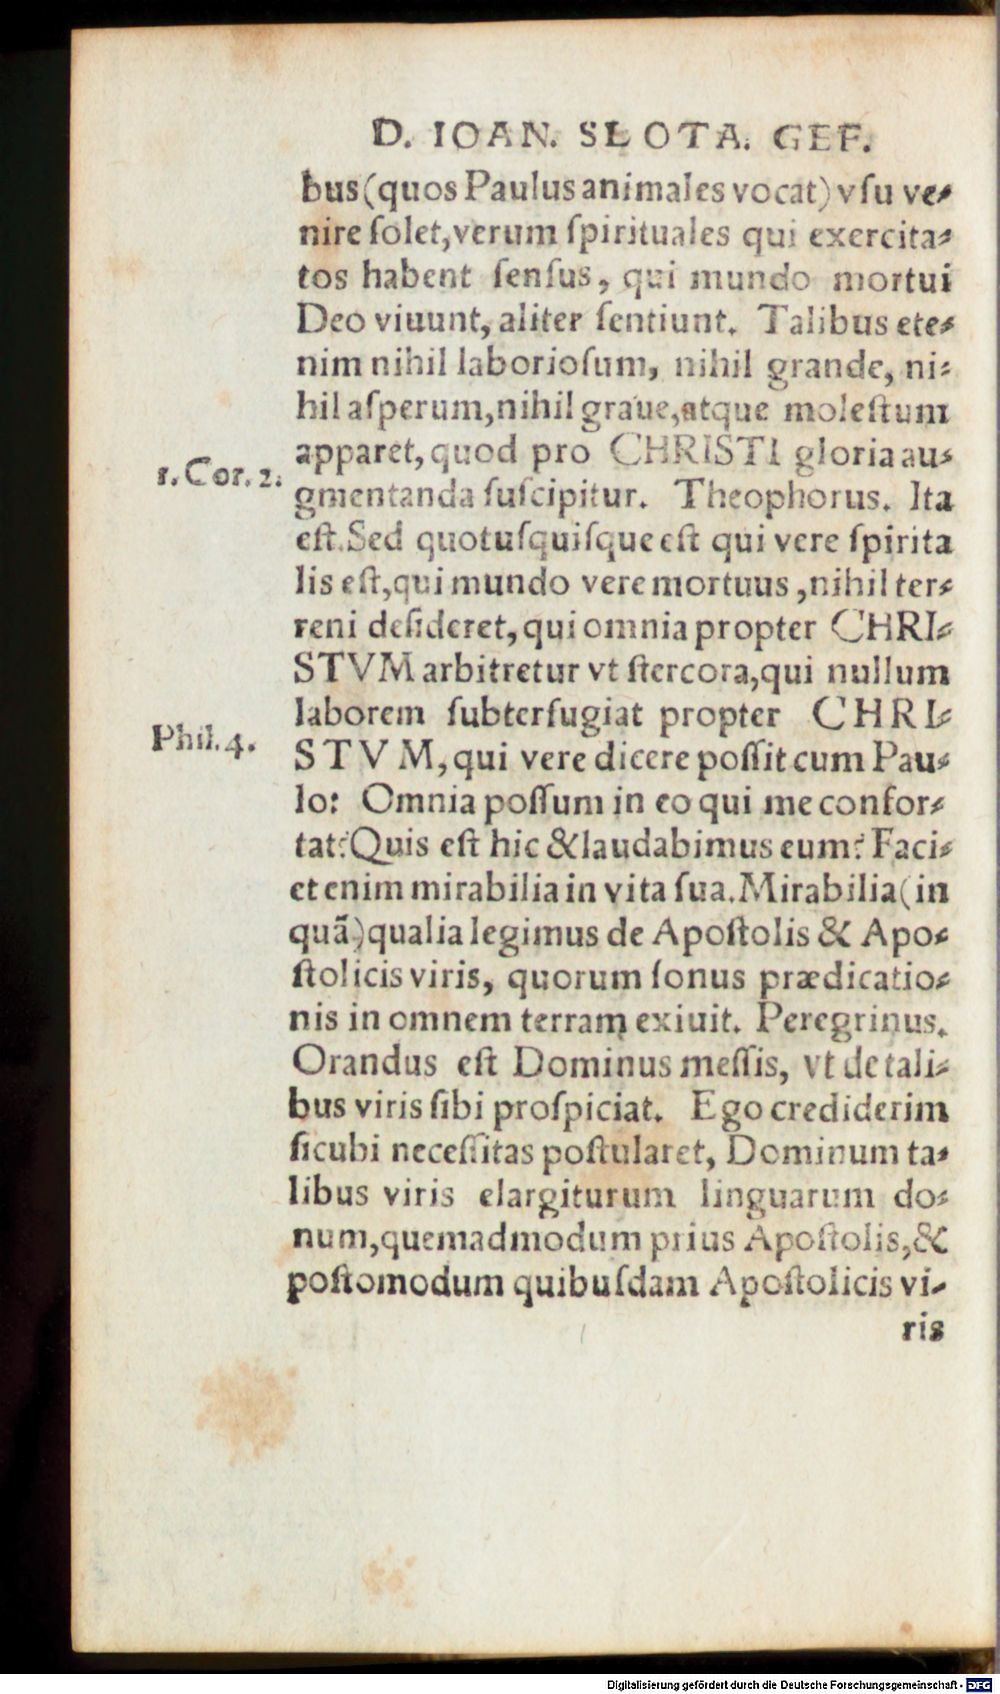 D. IOAN. SLOTA. GEF.
bus(quos Paulus animales vocat) vſu ve-
nire ſolet,verum ſpirituales qui exercita-
tos habent ſenſus, qui mundo mortui
Deo viuunt, aliter ſentiunt. Talibus ete-
nim nihil laborioſum, nihil grande, ni-
hil aſperum,nihil graue,atque moleſtum
apparet, quod pro CHRISTI gloria au-
1. Cor. 2.
gmentanda ſuſcipitur. Theophorus. Ita
eſt.Sed quotuſquiſque eſt qui vere ſpirita
lis eſt,qui mundo vere mortuus ,nihil ter-
reni deſideret, qui omnia propter CHRI-
STVM arbitretur vt ſtercora,qui nullum
laborem ſubterfugiat propter CHRI-
Phil. 4.
STVM, qui vere dicere poſſit cum Pau-
lo: Omnia poſſum in eo qui me confor-
tat? Quis eſt hic & laudabimus eum? Faci-
et enim mirabilia in vita ſua. Mirabilia (in
quã) qualia legimus de Apoſtolis & Apo-
ſtolicis viris, quorum ſonus prædicatio-
nis in omnem terram exiuit. Peregrinus.
Orandus eſt Dominus meſſis, vt de tali-
bus viris ſibi proſpiciat. Ego crediderim
ſicubi neceſſitas poſtularet, Dominum ta-
libus viris elargiturum linguarum do-
num,quemadmodum prius Apoſtolis,&
poſtomodum quibuſdam Apoſtolicis vi-
ris
Digitalisierung gefördert durch die Deutsche Forschungsgemeinschaft - DFG